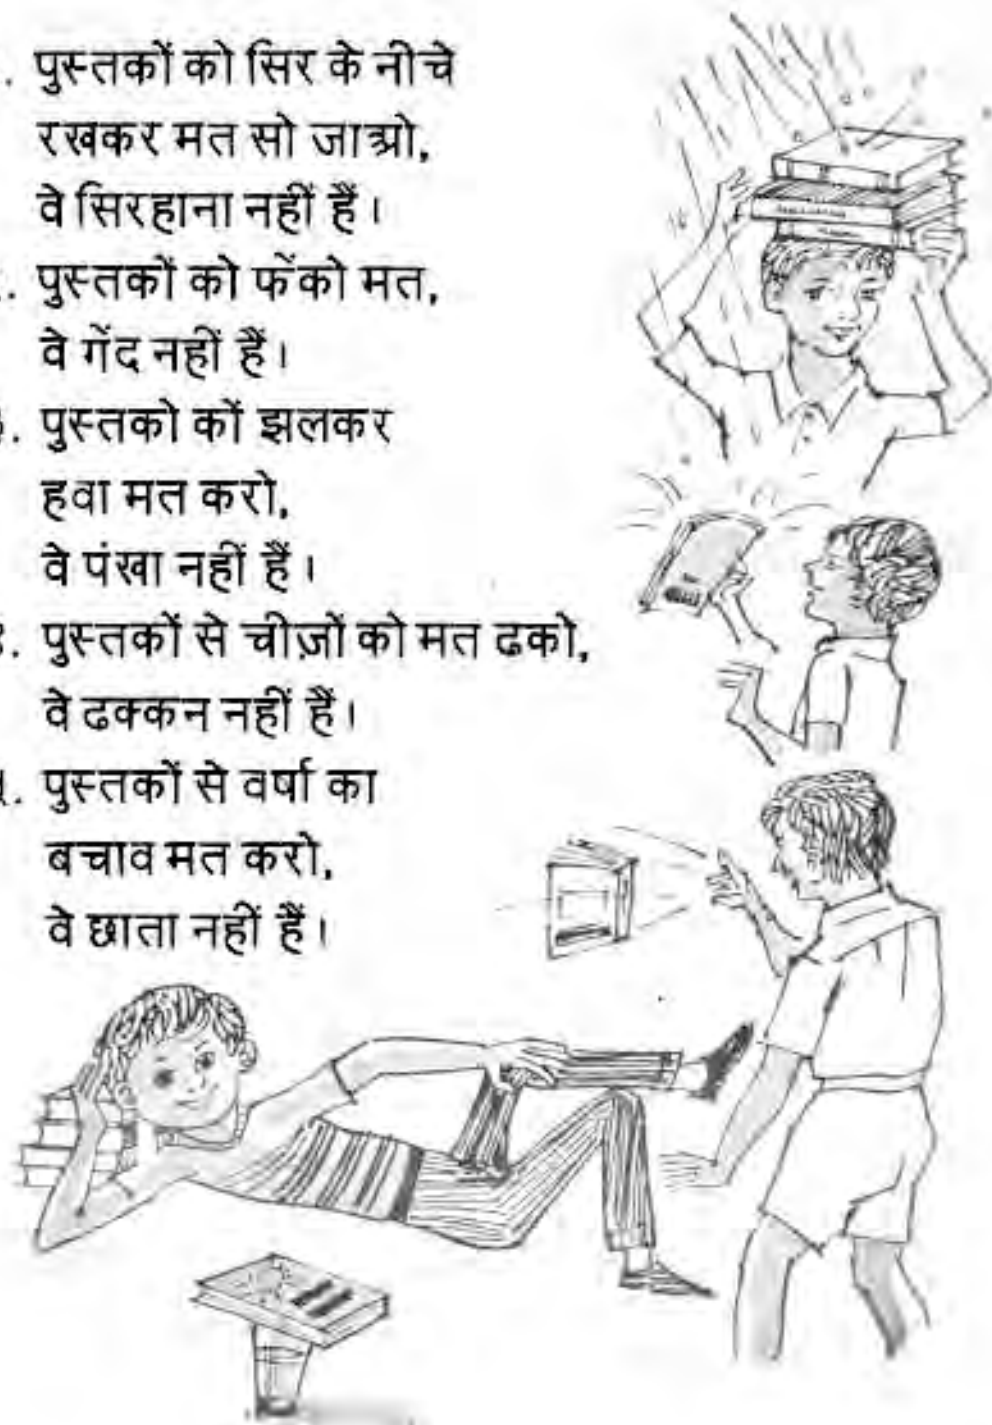 . पुस्तकों को सिर के नीचे
रखकर मत सो जाओ,
वे सिरहाना नहीं हैं।
. पुस्तकों को फेंको मत,
वे गेंद नहीं हैं।
. पुस्तको कों झलकर
हवा मत करो,
वे पंखा नहीं हैं।
. पुस्तकों से चीज़ों को मत ढको,
वे ढक्कन नहीं हैं।
. पुस्तकों से वर्षा का
बचाव मत करो,
वे छाता नहीं हैं।